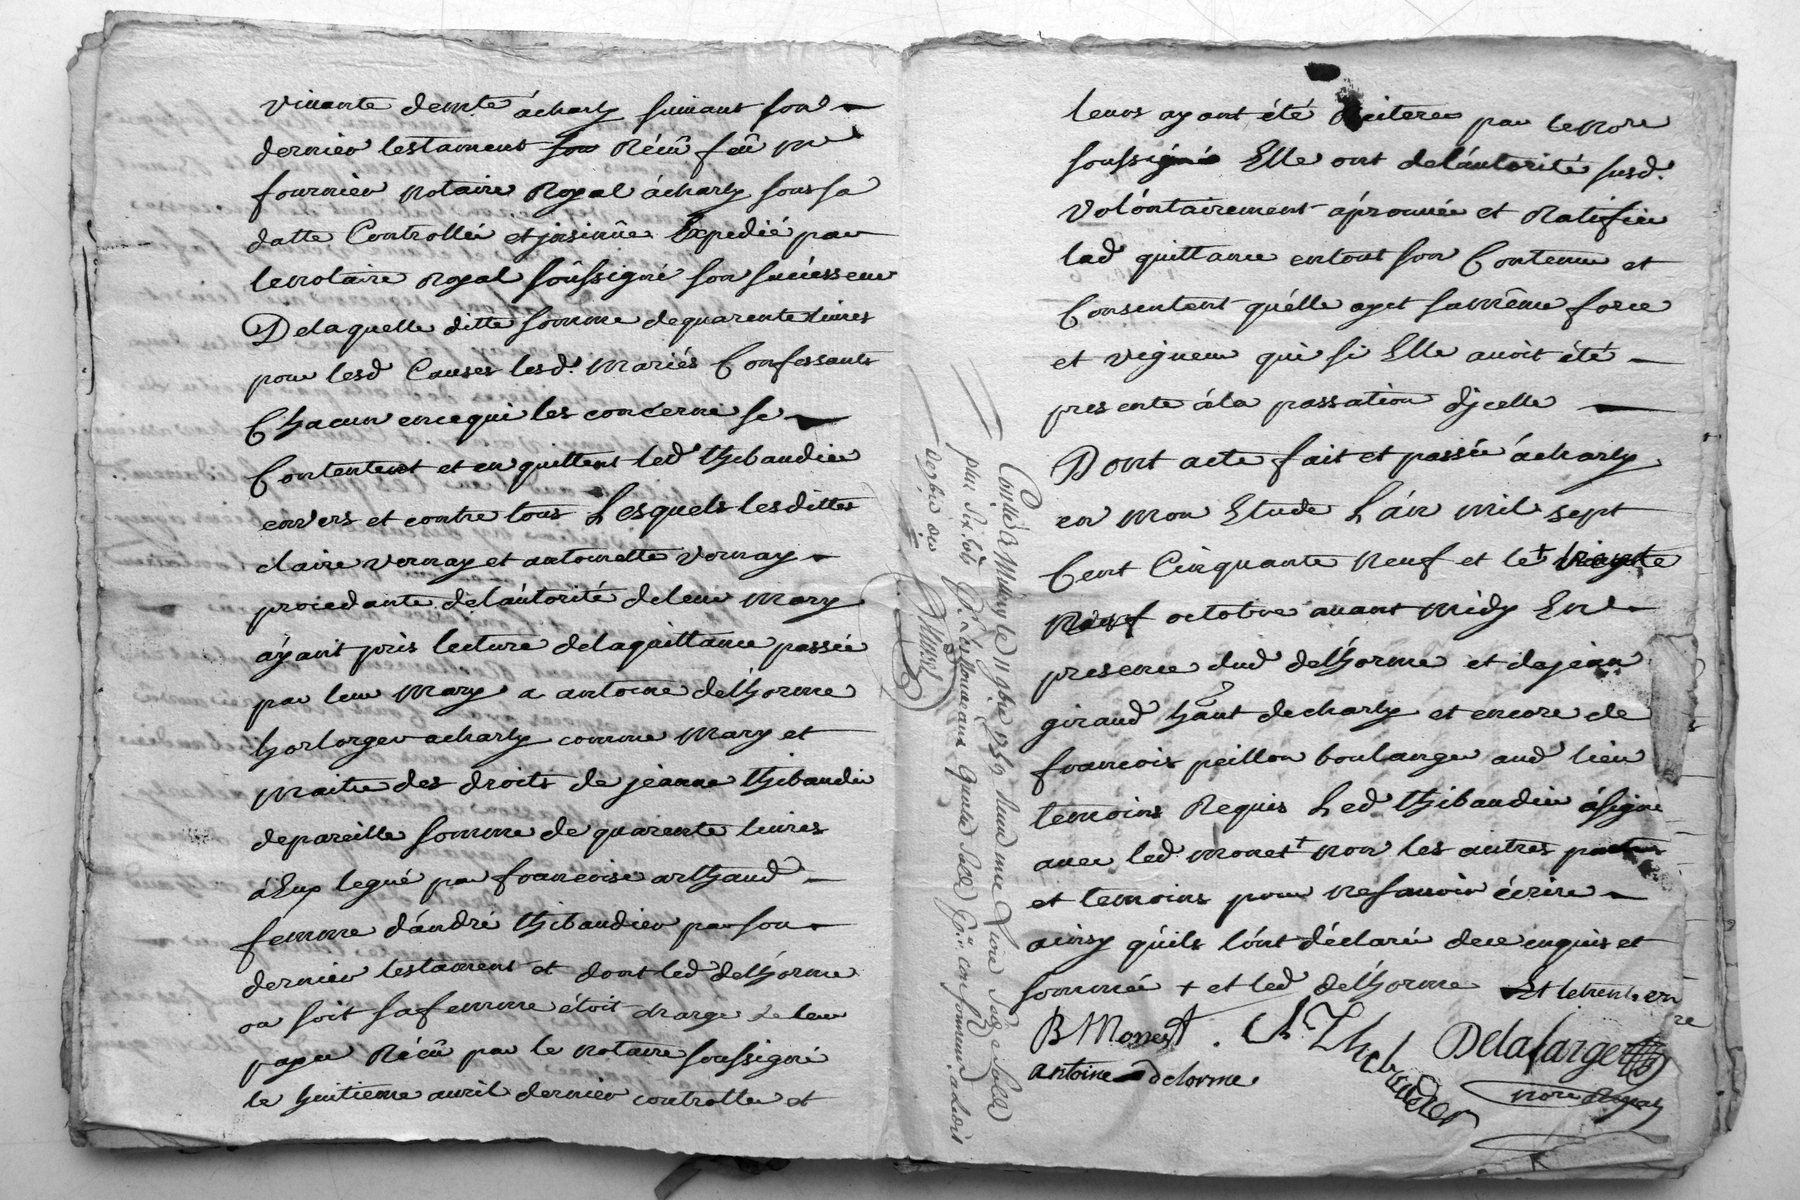 vivante demte á charly suivant son
dernier testament son Récû feû me
fournier notaire Royal á charly sous sa
datte Controllée et jnsinûe Expedié par
le notaire Royal soûssigné son sućesseur
De laquelle ditte somme de quarente livres
pour lesd Causes lesd. Mariés Confessants
Chacun en ce qui les concerne se
Contentent et en quittent led thibaudier
envers et contre tous Lesquels lesdittes
claire vernay et antoinette vernay
procedante de láutorité de leur Mary
áyant pris lecture de la quittance passée
par leur Mary a antoine delhorme
horlorger a charly comme Mary et
Maitre des droits de jeanne thibaudier
de pareille somme de quarente livres
á Eux legué par francoise arthaud
femme dándré thibaudier par son
dernier testament et dont led delhorme
ou soit sa femme étoit charge de leur
payer Récû par le notaire soussigné
le huitieme avril dernier controllee et
leurs ayant été Reiterer par le Nore
soussigné Elle ont de láutorité susd.
Volóntairement áprouvée et Ratifiée
lad quittance en tout son Contenu et
Consentent qu'elle ayet sa même force
et vigueur qui si Elle avoit été
presente á la passation djcelle
Dont acte fait et passée á charly
en mon Etude L'án mil sept
Cent Cinquante Neuf et le + vingt
Neuf octobre avant Midy En
presence dud delhorme et de jean
giraud hant de charly et encore de
francois peillon boulanger aud lieu
temoins Requis Led thibaudier á signe
avec led monet + non les autres parties
et temoins pour ne savoir écrire
ainsy qúils lónt déclaré de ce enquis et
sommée + et led delhorme Et le trente
B Monest Thibaudier Delafarge
antoine delorme nore Royal
Conllé á Millery le 9bre 1759 une Livre
plus six sols quarte